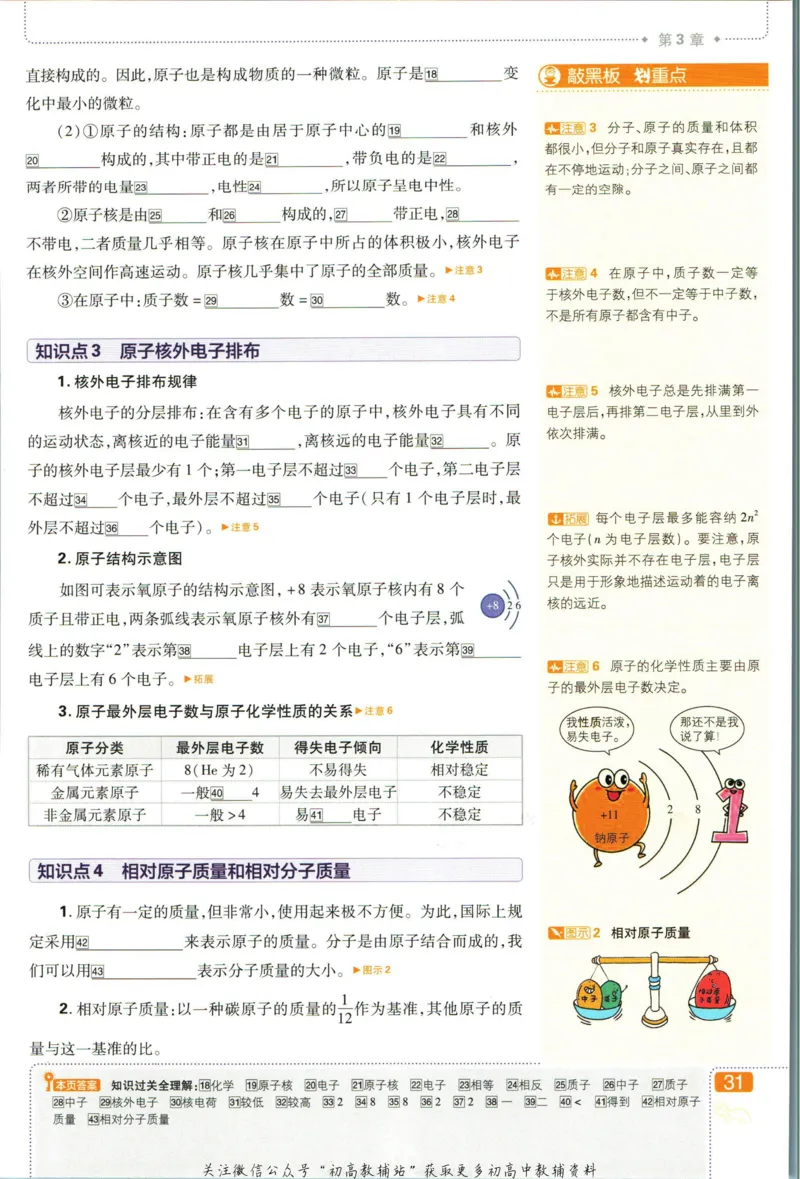 第3章
直接构成的。因此,原子也是构成物质的一种微粒。原子是18________变
化中最小的微粒。
(2)①原子的结构:原子都是由居于原子中心的19________和核外
20________构成的,其中带正电的是21________,带负电的是22________,
两者所带的电量23________,电性24________,所以原子呈电中性。
②原子核是由25______和26______构成的,27______带正电,28________
不带电,二者质量几乎相等。原子核在原子中所占的体积极小,核外电子
在核外空间作高速运动。原子核几乎集中了原子的全部质量。▶注意3
③在原子中:质子数=29________数=30________数。▶注意4
知识点3 原子核外电子排布
1.核外电子排布规律
核外电子的分层排布:在含有多个电子的原子中,核外电子具有不同
的运动状态,离核近的电子能量31______,离核远的电子能量32______。原
子的核外电子层最少有1个;第一电子层不超过33____个电子,第二电子层
不超过34____个电子,最外层不超过35____个电子(只有1个电子层时,最
外层不超过36____个电子)。▶注意5
2.原子结构示意图
如图可表示氧原子的结构示意图,+8表示氧原子核内有8个
质子且带正电,两条弧线表示氧原子核外有37______个电子层,弧
线上的数字“2”表示第38______电子层上有2个电子,“6”表示第39______
电子层上有6个电子。▶拓展
+8 2 6
3.原子最外层电子数与原子化学性质的关系▶注意6
原子分类 最外层电子数 得失电子倾向 化学性质
稀有气体元素原子 8(He为2) 不易得失 相对稳定
金属元素原子 一般40____4 易失去最外层电子 不稳定
非金属元素原子 一般>4 易41____电子 不稳定
知识点4 相对原子质量和相对分子质量
1.原子有一定的质量,但非常小,使用起来极不方便。为此,国际上规
定采用42____________来表示原子的质量。分子是由原子结合而成的,我
们可以用43____________表示分子质量的大小。▶图示2
2.相对原子质量:以一种碳原子的质量的1/12作为基准,其他原子的质
量与这一基准的比。
敲黑板 划重点
注意3 分子、原子的质量和体积
都很小,但分子和原子真实存在,且都
在不停地运动;分子之间、原子之间都
有一定的空隙。
注意4 在原子中,质子数一定等
于核外电子数,但不一定等于中子数,
不是所有原子都含有中子。
注意5 核外电子总是先排满第一
电子层后,再排第二电子层,从里到外
依次排满。
拓展 每个电子层最多能容纳2n²
个电子(n为电子层数)。要注意,原
子核外实际并不存在电子层,电子层
只是用于形象地描述运动着的电子离
核的远近。
注意6 原子的化学性质主要由原
子的最外层电子数决定。
我性质活泼,
易失电子。
那还不是我
说了算!
+11
钠原子
2 8 1
图示2 相对原子质量
中子
质子
相对原
子质量
本页答案 知识过关全理解:18化学 19原子核 20电子 21原子核 22电子 23相等 24相反 25质子 26中子 27质子
28中子 29核外电子 30核电荷 31较低 32较高 33 2 34 8 35 8 36 2 37 2 38一 39二 40< 41得到 42相对原子
质量 43相对分子质量
31
关注微信公众号“初高教辅站”获取更多初高中教辅资料